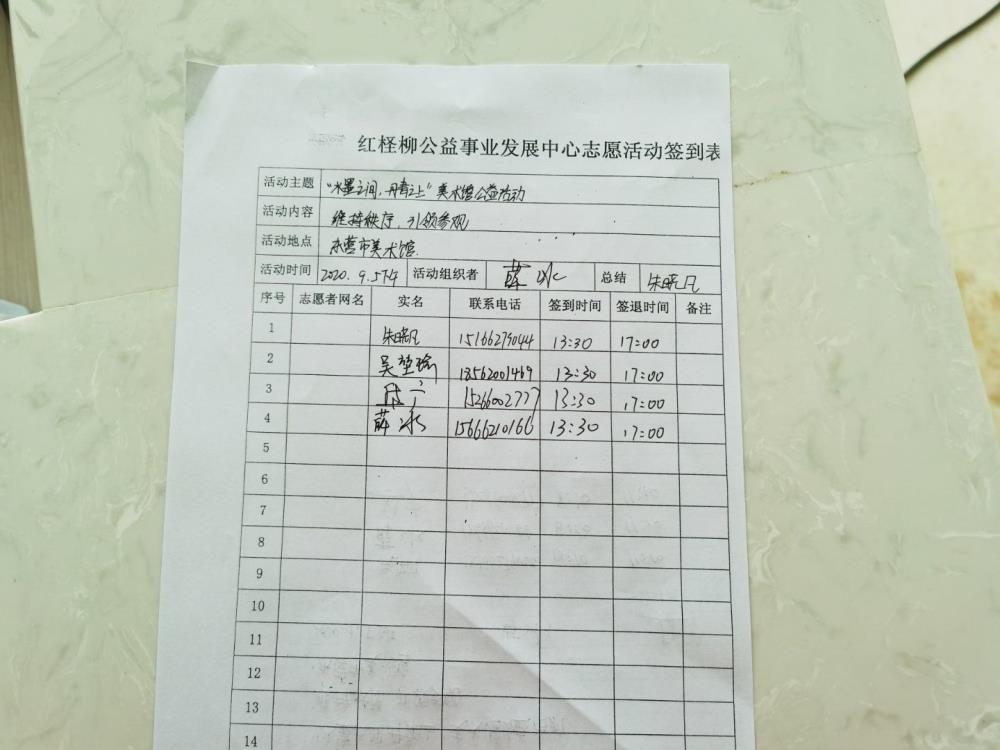 红柽柳公益事业发展中心志愿活动签到表
活动主题 "水墨之间,丹青之上"美术馆公益活动
活动内容 维持秩序,引领参观
活动地点 东营市美术馆.
活动时间 2020.9.5下午 活动组织者 薛冰 总结 朱晓凡
序号 志愿者网名 实名 联系电话 签到时间 签退时间 备注
1 朱晓凡 15166279044 13:30 17:00
2 吴堃瑜 18562001469 13:30 17:00
3 15266002777 13:30 17:00
4 薛冰 15666210166 13:30 17:00
5
6
7
8
9
10
11
12
13
14